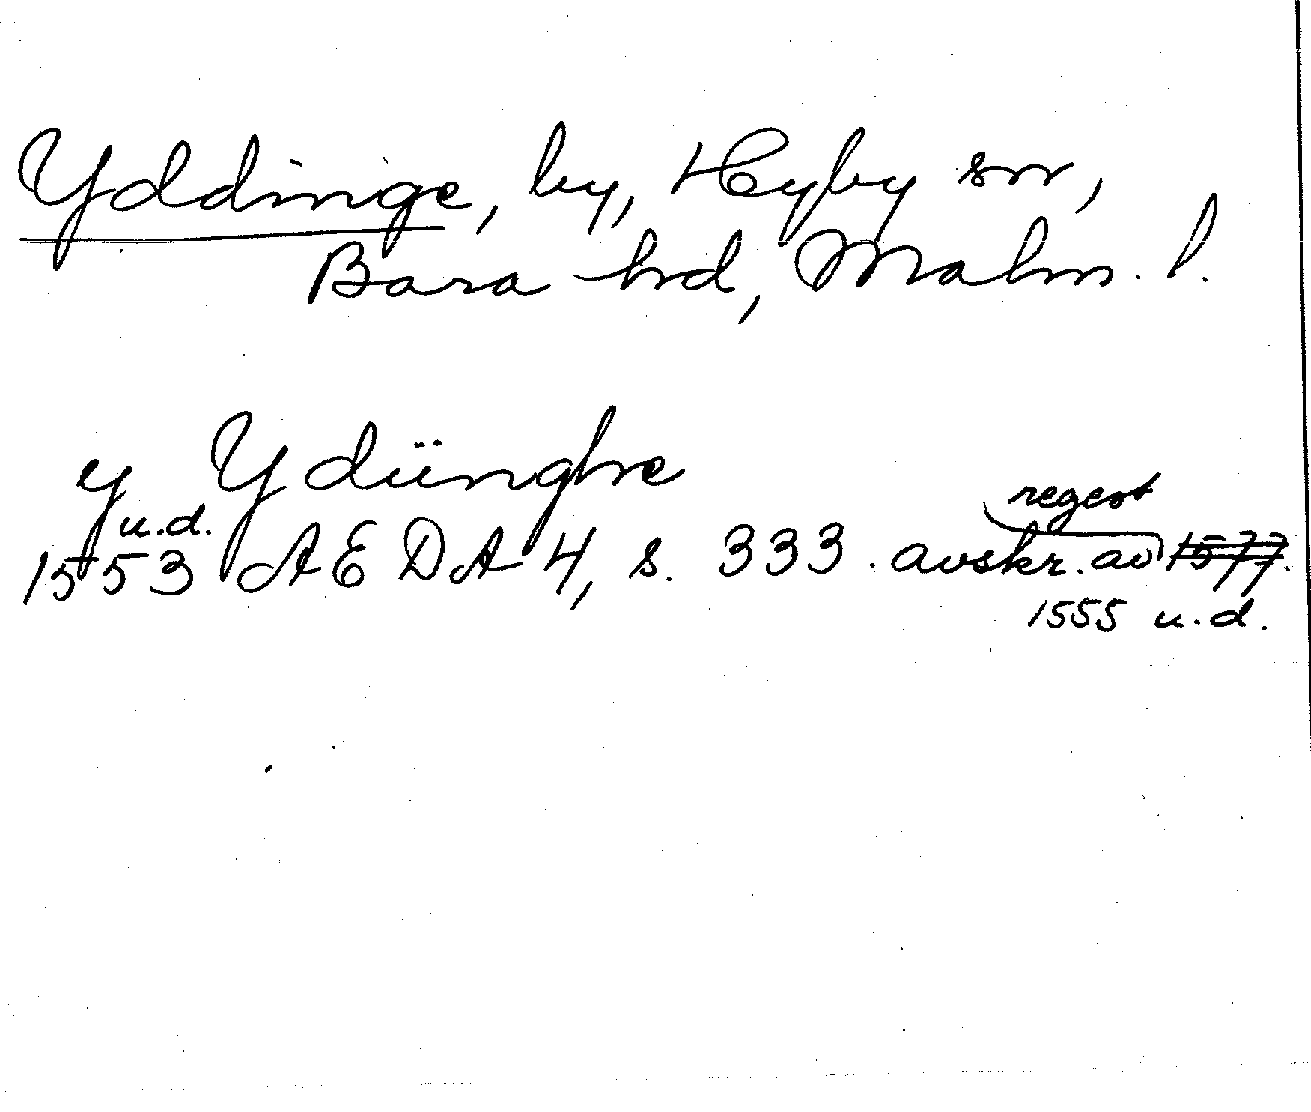 Yddinge, by, Hyby sn,
Bara hd, Malm. l.
y Ydünghe
u.d.
regest
1553 AEDA 4, s. 333. avskr. av 1577.
1555 u.d.